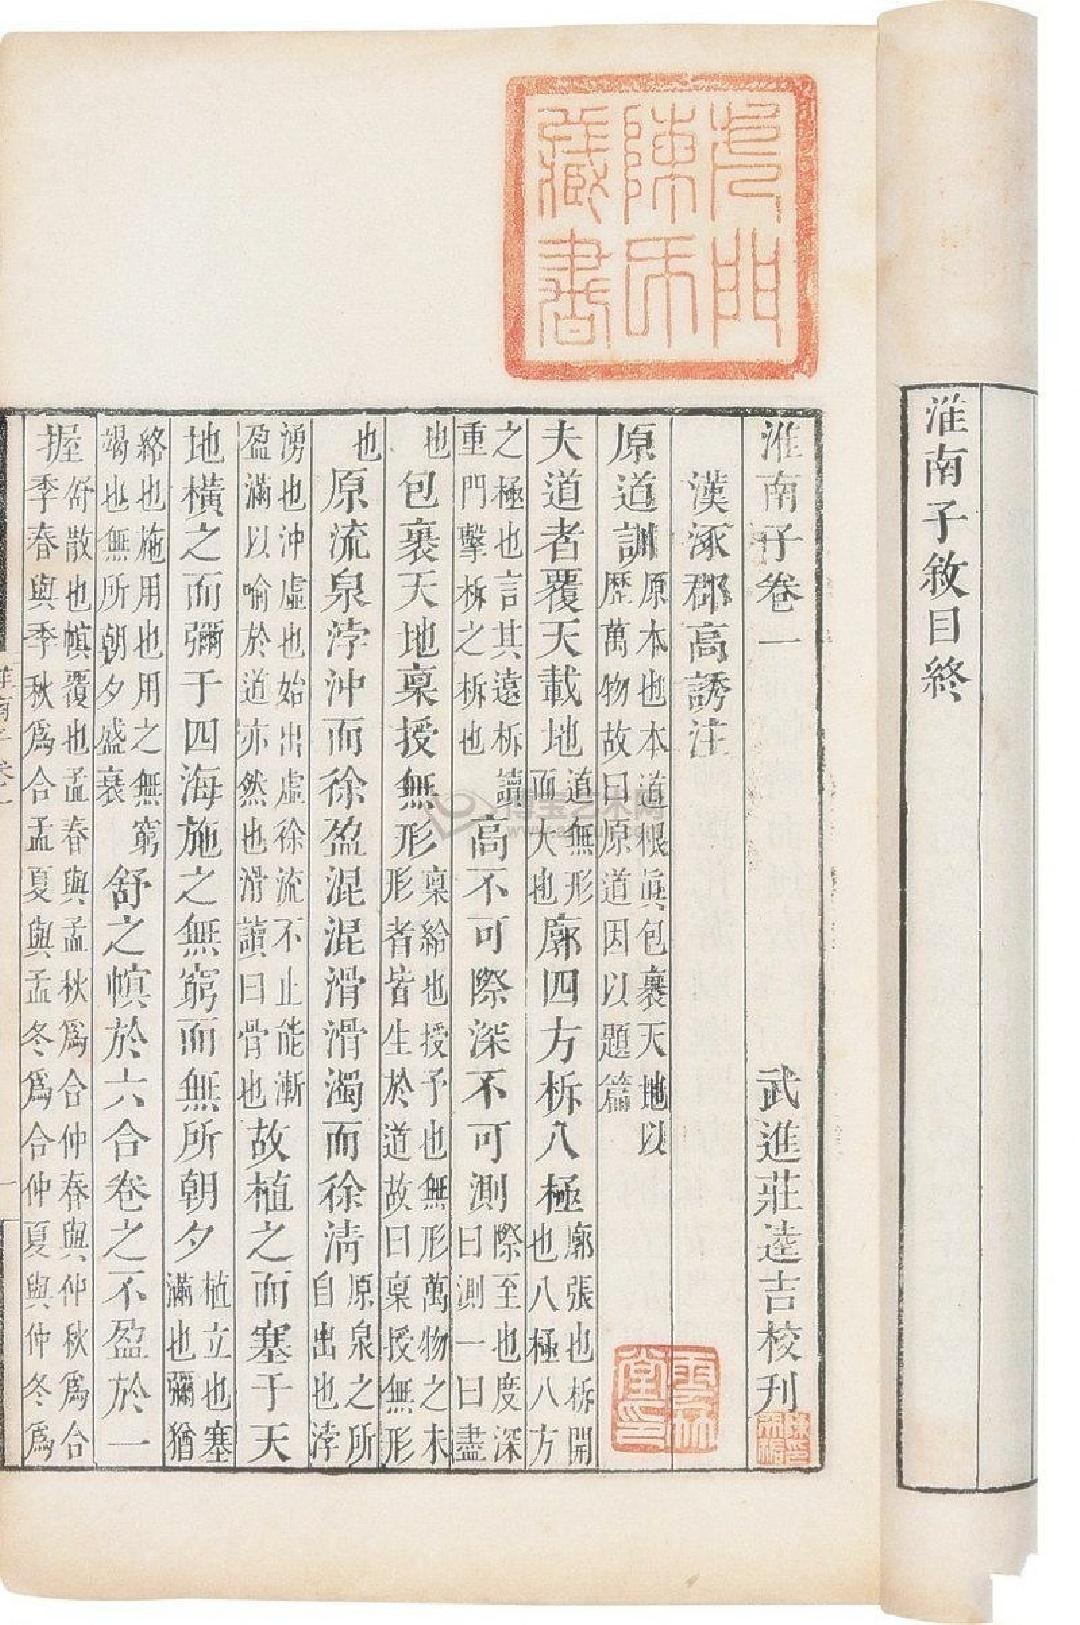 淮南子敘目終
門陳氏藏書
淮南子卷一 武進莊逵吉校刊
漢涿郡高誘注
原道訓 原本也本道根真包裹天地以歷萬物故曰原道因以題篇
夫道者覆天載地 道無形而大也 廓四方柝八極 廓張也柝開也八極八方
之極也言其遠柝讀重門擊柝之柝也 高不可際深不可測 際至也度深曰測一曰盡
也 包裹天地稟授無形 稟給也授予也無形萬物之未形者皆生於道故曰稟授無形
也 原流泉浡沖而徐盈混混滑滑濁而徐清 原泉之所自出也浡
湧也沖虛也始出虛徐流不止能漸盈滿以喻於道亦然也滑讀曰骨也 故植之而塞于天
地橫之而彌于四海施之無窮而無所朝夕 植立也塞滿也彌猶
絡也施用也用之無窮竭也無所朝夕盛衰 舒之幎於六合卷之不盈於一
握 舒散也幎覆也孟春與孟秋爲合仲春與仲秋爲合季春與季秋爲合孟夏與孟冬爲合仲夏與仲冬爲
雲林堂印